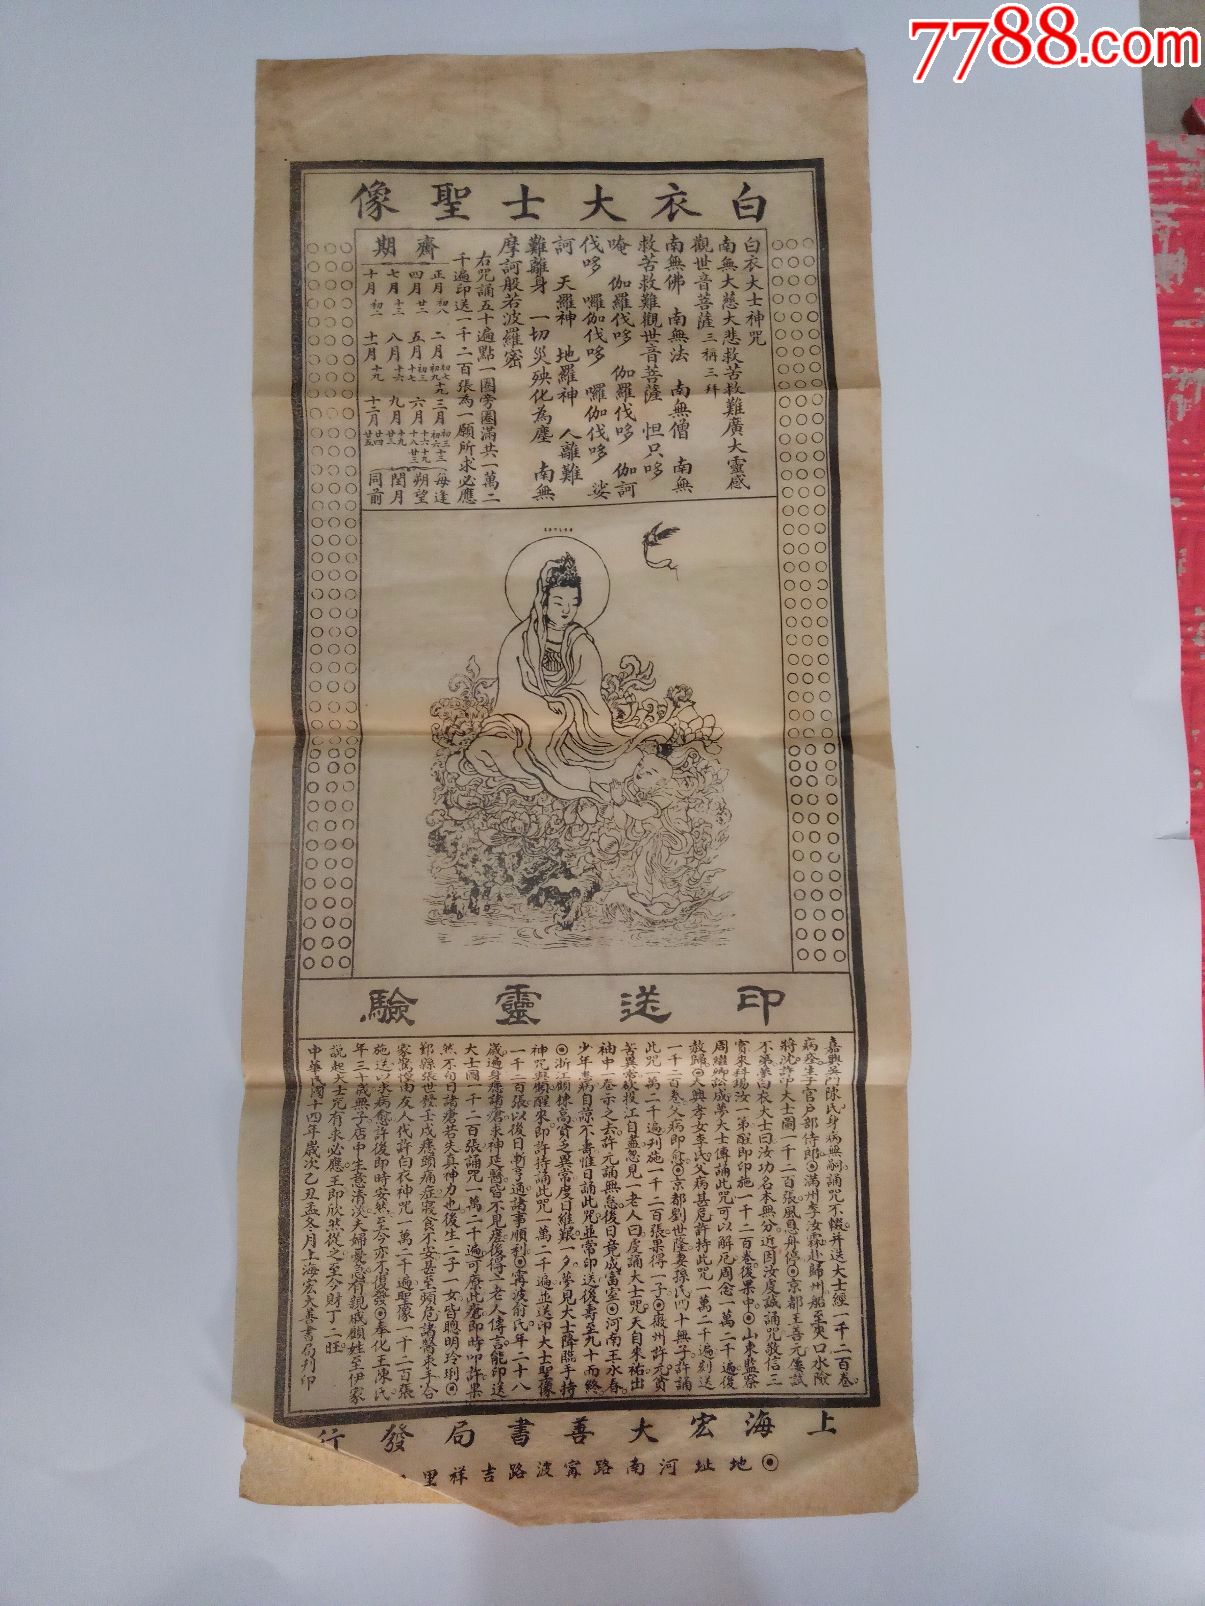 7788.com
白衣大士聖像
白衣大士神咒
南無大慈大悲救苦救難廣大靈感
觀世音菩薩 三稱三拜
南無佛 南無法 南無僧 南無
救苦救難觀世音菩薩 怛只哆
唵 伽羅伐哆 伽羅伐哆 伽訶
伐哆 囉伽伐哆 囉伽伐哆 娑
訶 天羅神 地羅神 人離難
難離身 一切災殃化為塵 南無
摩訶般若波羅密
右咒誦五十遍點一圈旁圈滿共一萬二
千遍印送一千二百張為一願所求必應
齋期
正月 初八 二月 初七 初九 十九 三月 初三 初六 十三
四月 廿二 五月 初三 十七 六月 十六 十八 十九 廿三
七月 十三 八月 十六 九月 十九 廿三
十月 初二 十一月 十九 十二月 廿四 廿五
每逢朔望
閏月同前
印送靈驗
嘉興吳門陳氏身病無嗣誦咒不輟并送大士經一千二百卷
病痊生子官戶部侍郎◎滿州李汝霖赴歸州船至
將沈許印大士圖一千二百張風息舟停◎京都王善元屢試
不第夢白衣大士曰汝功名本無分近因汝虔誠誦咒敬信三
寶來科場汝一第醒即印施一千二百卷後果中◎山東監察
周繼卿訟成夢大士傳誦此咒可以解厄周念一萬二千遍後
赦歸◎人興孝女李氏父病甚危許持此咒一萬二千遍刻送
一千二百卷父病即愈◎京都劉世隆妻孫氏四十無子許誦
此咒一萬二千遍刊施一千二百張果得一子◎徽州許元貧
苦異常欲投江自盡忽見一老人曰虔誦大士咒天自來祐出
袖中一卷示之去許元誦無怠後日竟成富室◎河南王永春
少年患病自諒不壽惟日誦此咒並常印送後壽至九十而終
◎浙江顧棟高貧乏異常度日維艱一夕夢見大士降臨手持
神咒與醒來即許持誦此咒一萬二千遍並送印大士聖像
一千二百張以後日漸亨通諸事順利◎甯波俞氏年二十八
歲遍身瘧諸瘡求神延醫皆不見應後得一老人傳言能印送
大士圖一千二百張誦咒一萬二千遍可應此瘡即時叩許果
然不旬日諸瘡若失真神力也後生二子一女皆聰明玲琍◎
鄞縣張世發壬戌患頭痛症寢食不安甚至頻危諸醫束手合
家驚惶由友人代許白衣神咒一萬二千遍聖像一千二百張
施送以求病愈許後即時安然至今亦不復發◎奉化王陳氏
年三十歲無子店中生意清淡夫婦憂急有親戚顧姓至伊家
說起大士咒有求必應王即欣然從之至今財丁二旺
中華民國十四年歲次乙丑孟夏月上海宏大善書局刊印
上海宏大善書局發行
◎地址河南路甯波路吉祥里